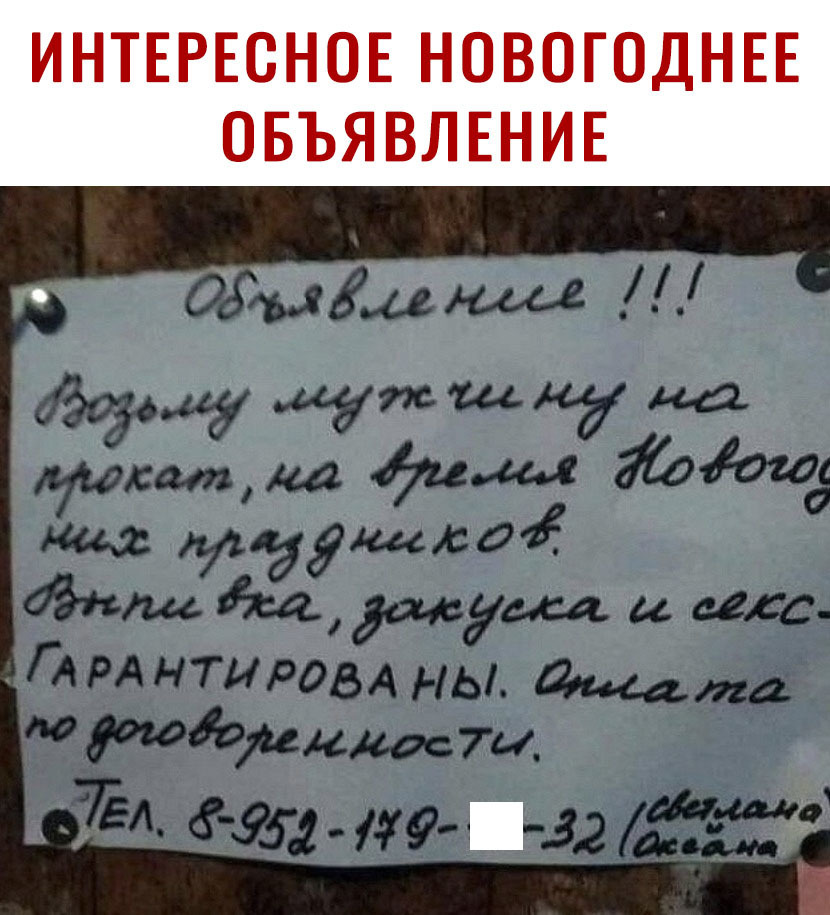 ИНТЕРЕСНОЕ НОВОГОДНЕЕ
ОБЪЯВЛЕНИЕ
Объявление !!!
Возьму мужчину на
прокат, на время Новогод
них праздников.
Выпивка, закуска и секс-
ГАРАНТИРОВАНЫ. Оплата
по договоренности.
ТЕЛ. 8-952-179- -32 (Светлана
Оксана